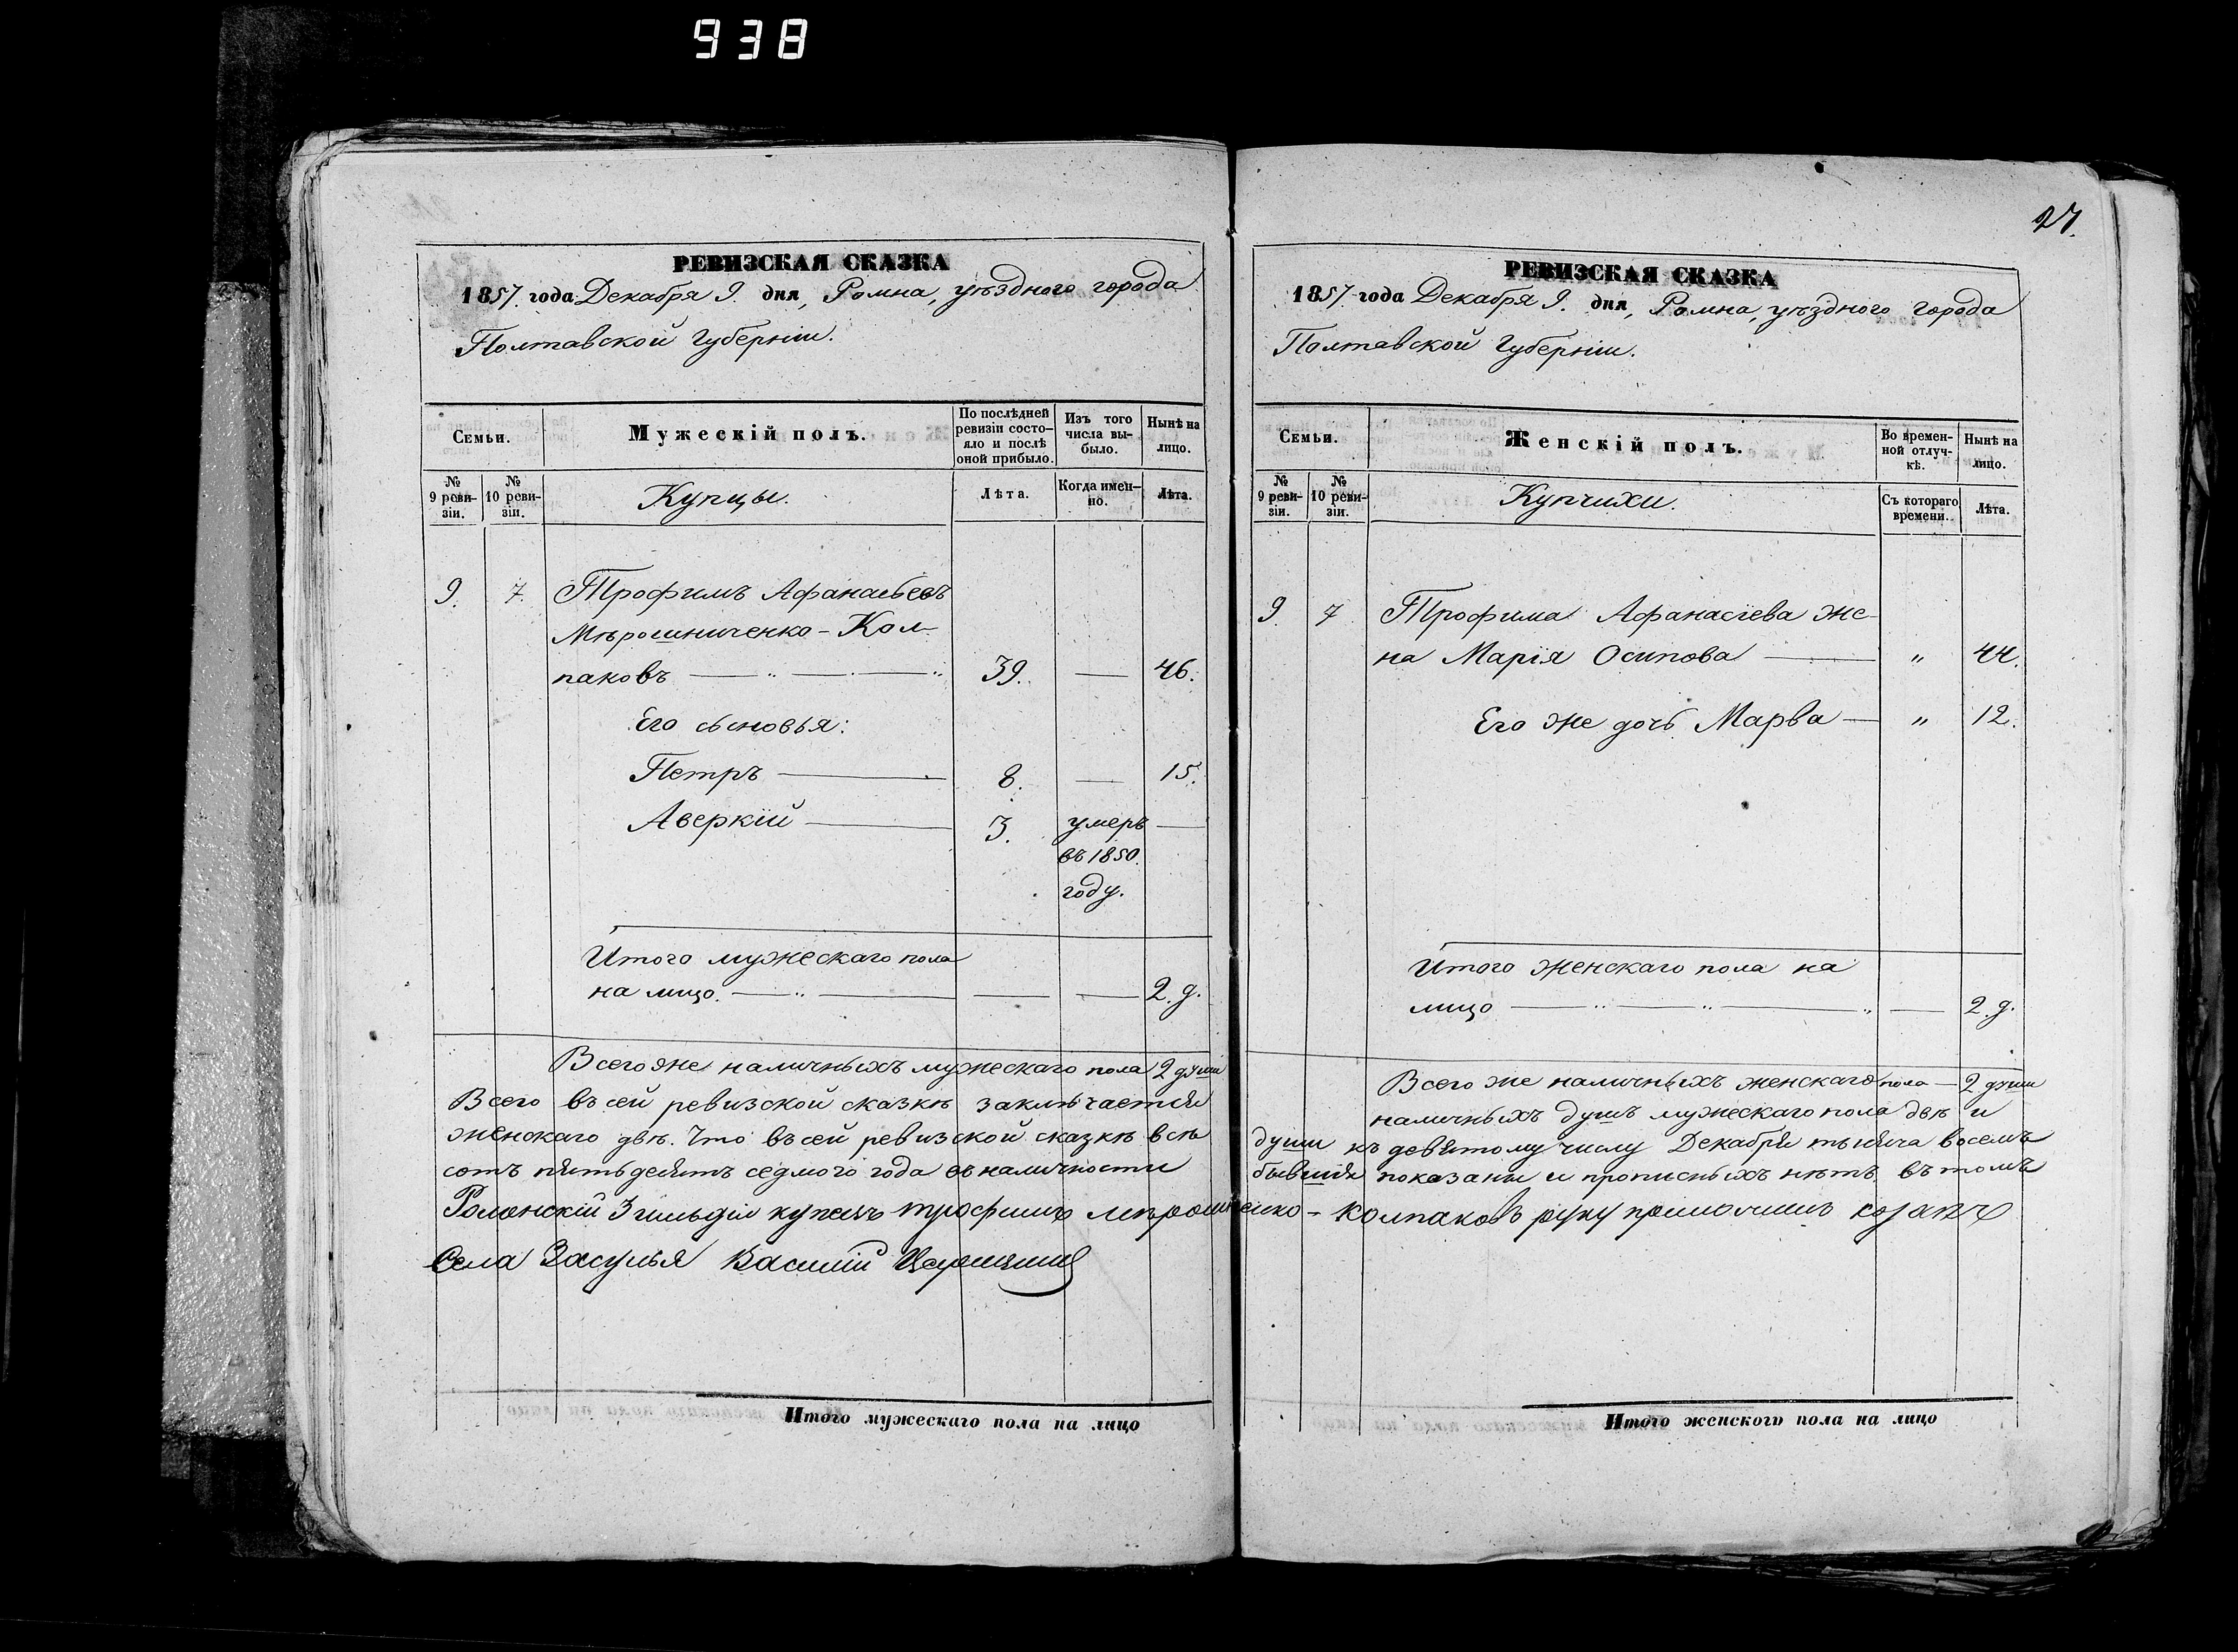 938
РЕВИЗСКАЯ СКАЗКА
1857. года Декабря 9. дня, Ромна, уѣзднаго города
Полтавской Губерніи.
Семьи.
Мужескій полъ.
По послѣдней ревизіи состояло и послѣ оной прибыло.
Изъ того числа выбыло.
Нынѣ на лицо.
№ 9 ревизіи.
№ 10 ревизіи.
Купцы.
Лѣта.
Когда именно.
Лѣта.
9. 7. Трофимъ Афанасьевъ
Мѣрошниченко - Кол-
паковъ 39. — 46.
Его сыновья:
Петръ — 8. — 15.
Аверкій — 3. умеръ —
въ 1850.
году.
Итого мужескаго пола
на лицо. — 2. д.
Всего же наличныхъ мужескаго пола 2 души
27.
РЕВИЗСКАЯ СКАЗКА
1857. года Декабря 9. дня, Ромна, уѣзднаго города
Полтавской Губерніи.
Семьи.
Женскій полъ.
Во временной отлучкѣ.
Нынѣ на лицо.
№ 9 ревизіи.
№ 10 ревизіи.
Купчихи.
Съ котораго времени.
Лѣта.
9. 7 Трофима Афанасіева же-
на Марія Осипова — " 44.
Его же дочь Марва — " 12.
Итого женскаго пола на
лицо — 2. д.
Всего же наличныхъ женскаго пола — 2 души
Всего въ сей ревизской сказкѣ заключается наличныхъ душъ мужескаго пола двѣ и
женскаго двѣ. Что въ сей ревизской сказкѣ всѣ души къ девятому числу Декабря тысяча восемь
сотъ пятьдесятъ седмого года въ наличности бывшія показаны и прописныхъ нѣтъ, въ томъ
Роменскій 3 гильдіи купецъ трофимъ мірошненко - колпаковъ руку приложилъ козакъ
Села Засулья Василій
Итого мужескаго пола на лицо
Итого женского пола на лицо